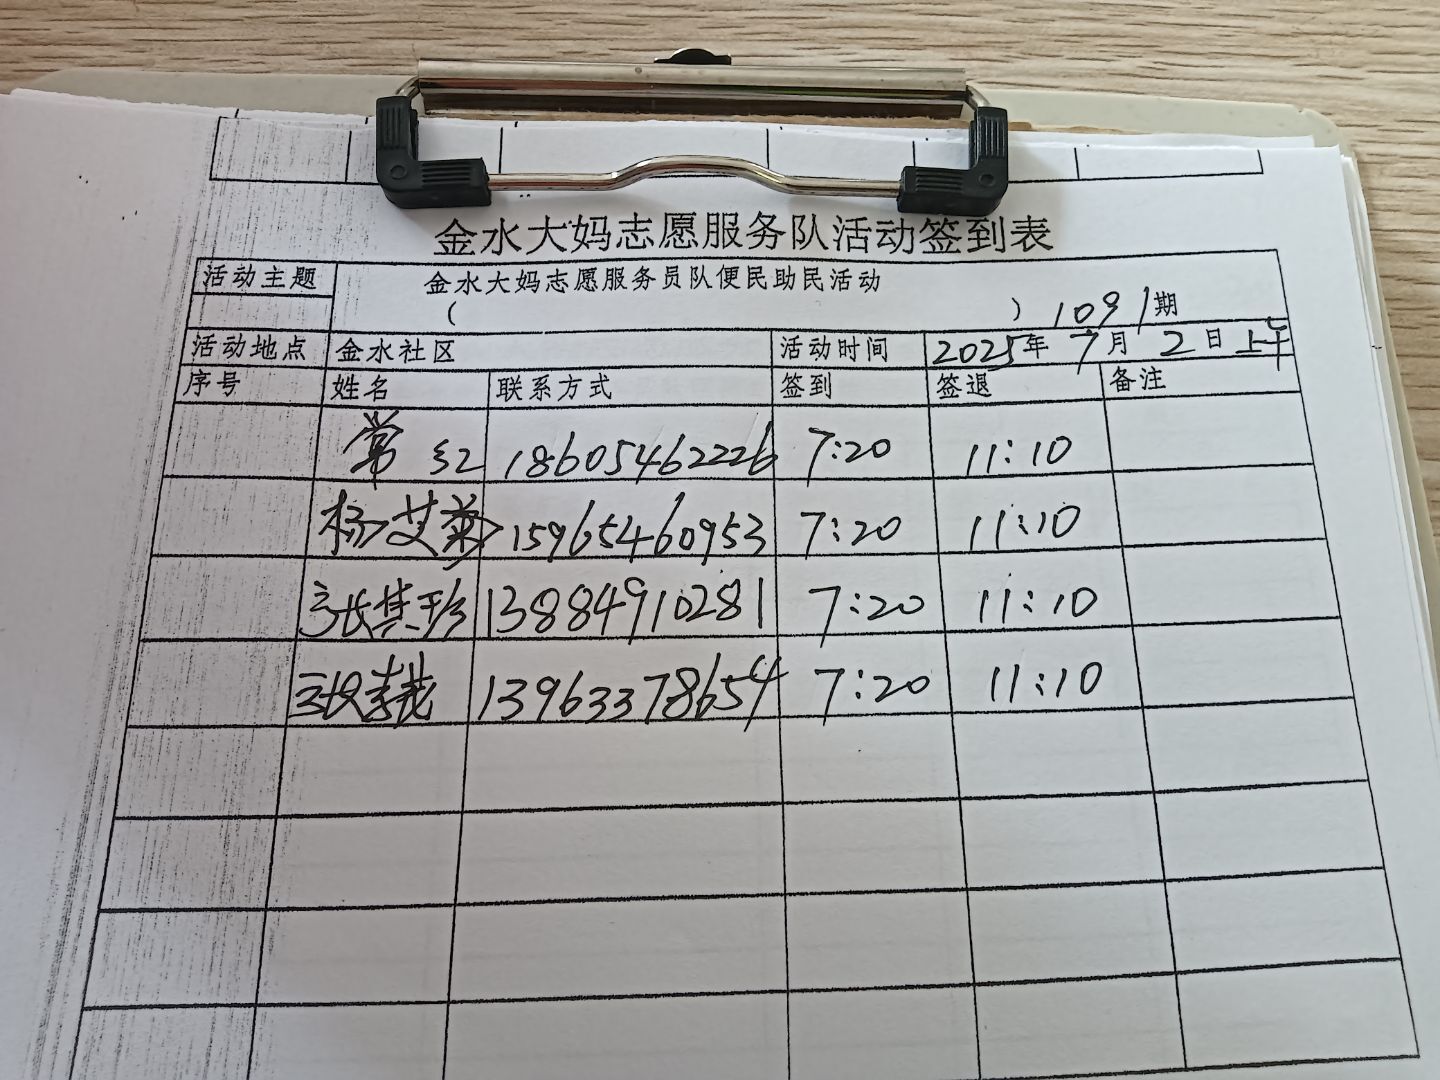 金水大妈志愿服务队活动签到表
活动主题 金水大妈志愿服务员队便民助民活动
( ) 1091期
活动地点 金水社区 活动时间 2025年7月2日上午
序号 姓名 联系方式 签到 签退 备注
常红 18605462226 7:20 11:10
杨艾菊 15965460953 7:20 11:10
张其珍 13884910281 7:20 11:10
张 13963378654 7:20 11:10